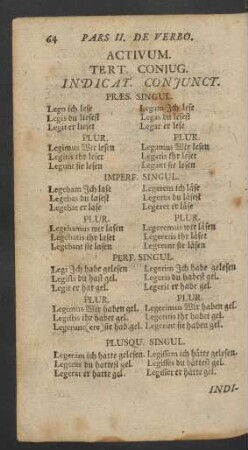 64 PARS II. DE VERBO.
ACTIVUM.
TERT. CONJUG.
INDICAT. CONJUNCT.
PRÆS. SINGUL.
Lego ich lese Legam Ich lese
Legis du liesest Legas du lesest
Legit er lieset Legat er lese
PLUR. PLUR.
Legimus Wir lesen Legamus Wir lesen
Legitis ihr leset Legatis ihr leset
Legunt sie lesen Legant sie lesen
IMPERF. SINGUL.
Legebam Ich lase Legerem ich läse
Legebas du lasest Legeres du läsest
Legebat er lase Legeret er läse
PLUR. PLUR.
Legebamus wer lasen Legeremus wer läsen
Legebatis ihr laset Legeretis ihr läset
Legebant sie lasen Legerent sie läsen
PERF. SINGUL.
Legi Ich habe gelesen Legerim Ich habe gelesen
Legisti du hast gel. Legeris du habest gel.
Legit er hat gel. Legerit er habe gel.
PLUR. PLUR.
Legimus Wir haben gel. Legerimus Wir haben gel.
Legistis ihr habet gel. Legeritis ihr habet gel.
Legerunt, ere sie hab. gel. Legerint sie haben gel.
PLUSQU. SINGUL.
Legeram ich hatte gelesen. Legissem ich hätte gelesen.
Legeras du hattest gel. Legisses du hättest gel.
Legerat er hatte gel. Legisset er hätte gel.
INDI-